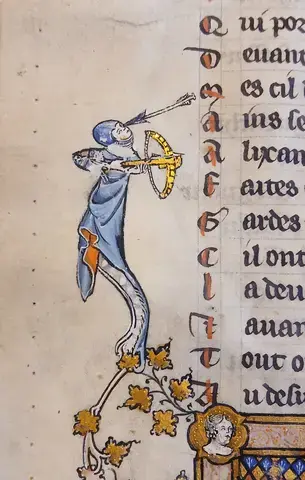 Qui por
Deuant
es cil
Ains se
Alixan
Faites
Gardes
Cil ont
adeu
avan
Tout o